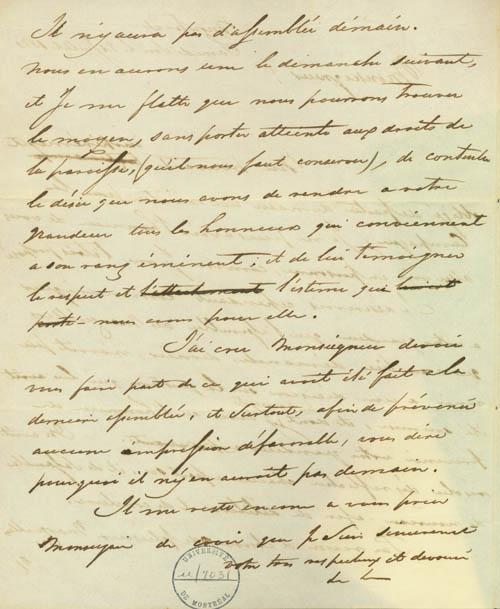 Il n'y aura pas d'assemblée démain.
nous en aurons une le dimanche suivant,
et Je me flatte que nous pourrons trouver
le moyen, sans porter atteinte aux droits de
la paroisse, (qu'il nous faut conserver), de contenter
le désir que nous avons de rendre a votre
grandeur tous les honneurs qui conviennent
a son rang éminent; et de lui temoigner
le respect et l'attachement l'estime que
nous avons pour elle.
J'ai cru Monseigneur devoir
vous faire part de ce qui avoit été fait a la
derniere assemblée, et surtout, afin de prévenir
aucune impression défavorable, vous dire
pourquoi il n'y en auroit pas demain.
Il me reste encore a vous prier
Monseigneur de croire que Je suis sincerement
votre tres respectueux et devoué
UNIVERSITÉ
DE MONTRÉAL